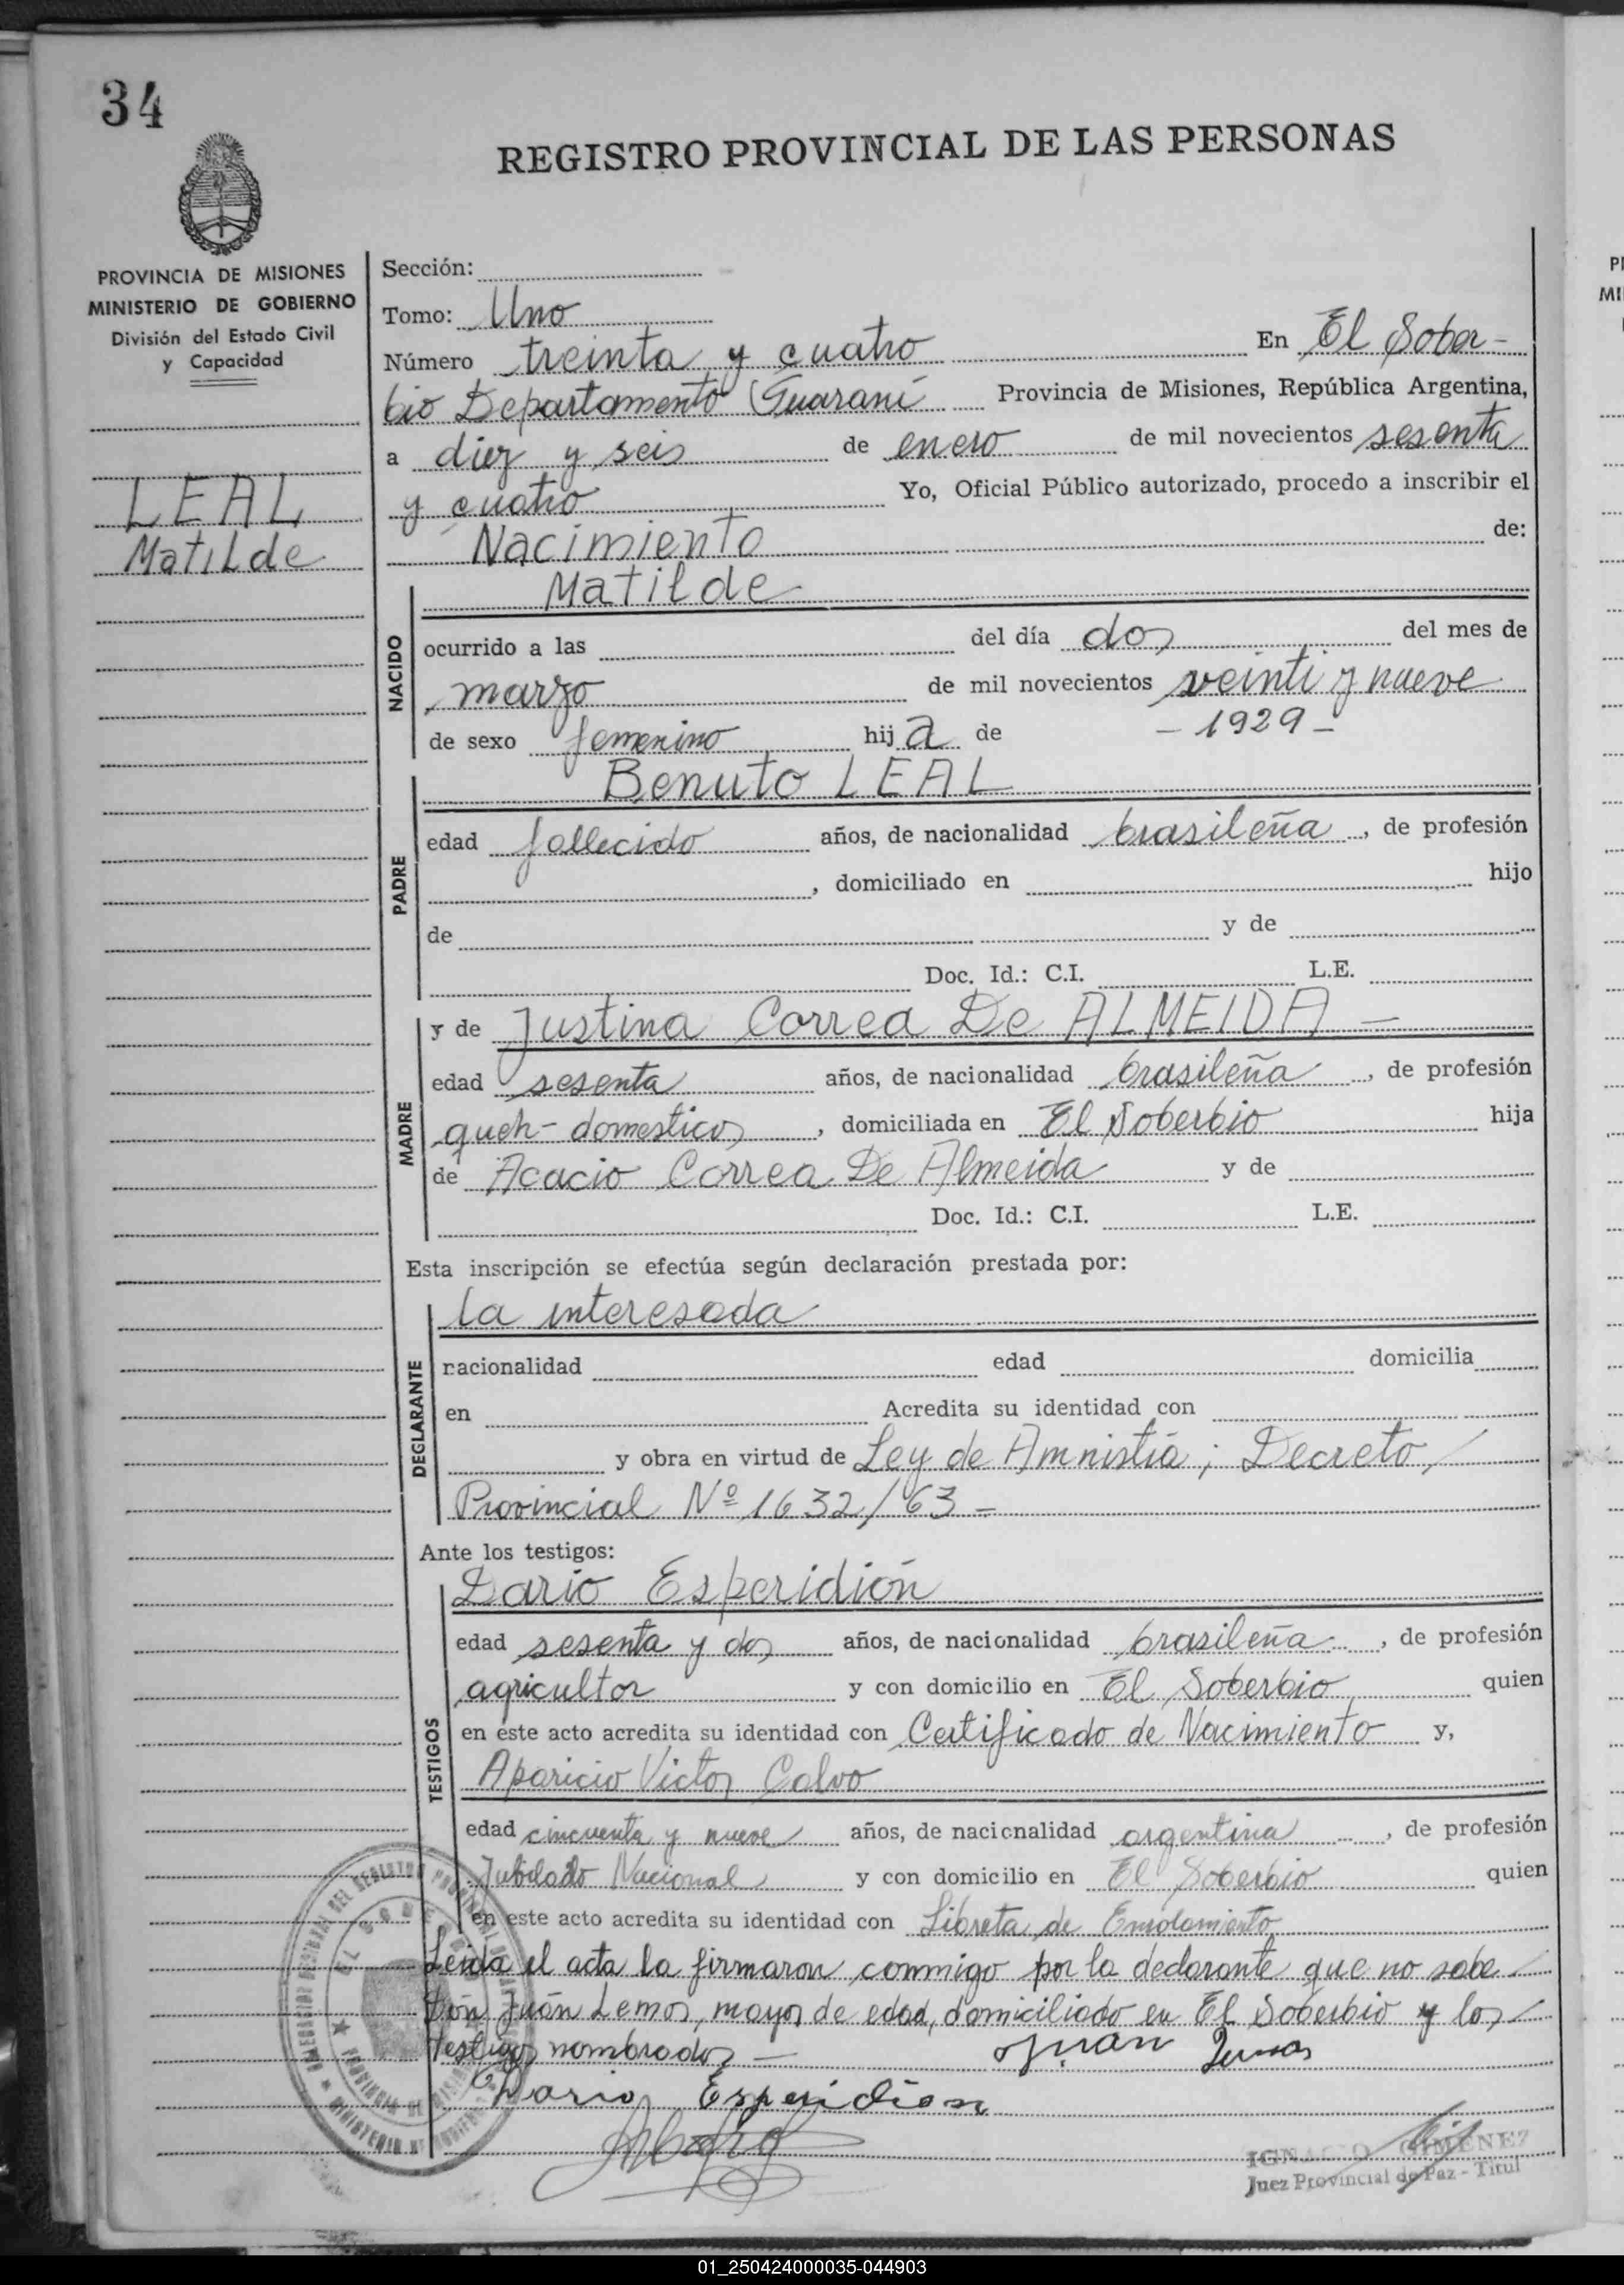 34
REGISTRO PROVINCIAL DE LAS PERSONAS
PROVINCIA DE MISIONES
MINISTERIO DE GOBIERNO
División del Estado Civil
y Capacidad
LEAL
Matilde
Sección:
Tomo: Uno
Número treinta y cuatro En El Sober-
bio Departamento Guaraní Provincia de Misiones, República Argentina,
a diez y seis de enero de mil novecientos sesenta
y cuatro Yo, Oficial Público autorizado, procedo a inscribir el
Nacimiento de:
Matilde
NACIDO
ocurrido a las del día dos del mes de
marzo de mil novecientos veinti y nueve
- 1929 -
de sexo femenino hija de
Benuto LEAL
PADRE
edad fallecido años, de nacionalidad brasileña, de profesión
, domiciliado en hijo
de y de
Doc. Id.: C.I. L.E.
MADRE
y de Justina Correa De ALMEIDA —
edad sesenta años, de nacionalidad brasileña, de profesión
queh- domesticos, domiciliada en El Soberbio hija
de Acacio Correa De Almeida y de
Doc. Id.: C.I. L.E.
Esta inscripción se efectúa según declaración prestada por:
DECLARANTE
la interesada
nacionalidad edad domicilia
en Acredita su identidad con
y obra en virtud de Ley de Amnistía; Decreto
Provincial Nº 1632/63 =
Ante los testigos:
TESTIGOS
Dario Esperidión
edad sesenta y dos años, de nacionalidad brasileña, de profesión
agricultor y con domicilio en El Soberbio quien
en este acto acredita su identidad con Certificado de Nacimiento y,
Aparicio Victor Calvo
edad cincuenta y nueve años, de nacionalidad argentina, de profesión
Jubilado Nacional y con domicilio en El Soberbio quien
en este acto acredita su identidad con Libreta de Enrolamiento
Leida el acta la firmaron conmigo por la declarante que no sabe
Don Juan Lemos, mayor de edad, domiciliado en El Soberbio y los
testigos nombrados —
Juan Lemos
Dario Esperidion
IGNACIO GIMENEZ
Juez Provincial de Paz - Titul
01_250424000035-044903